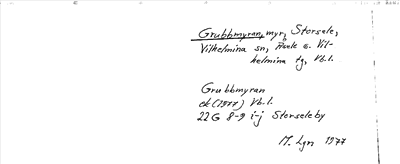 Grubbmyran, myr, Storsele,
Vilhelmina sn, Åsele o. Vil-
helmina tg, Vb.l.
Grubbmyran
ek (1977) Vb.l.
22G 8-9 i-j Storseleby
M. Lgn 1977